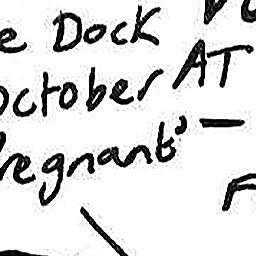 e Dock
October AT
regnant' —
F